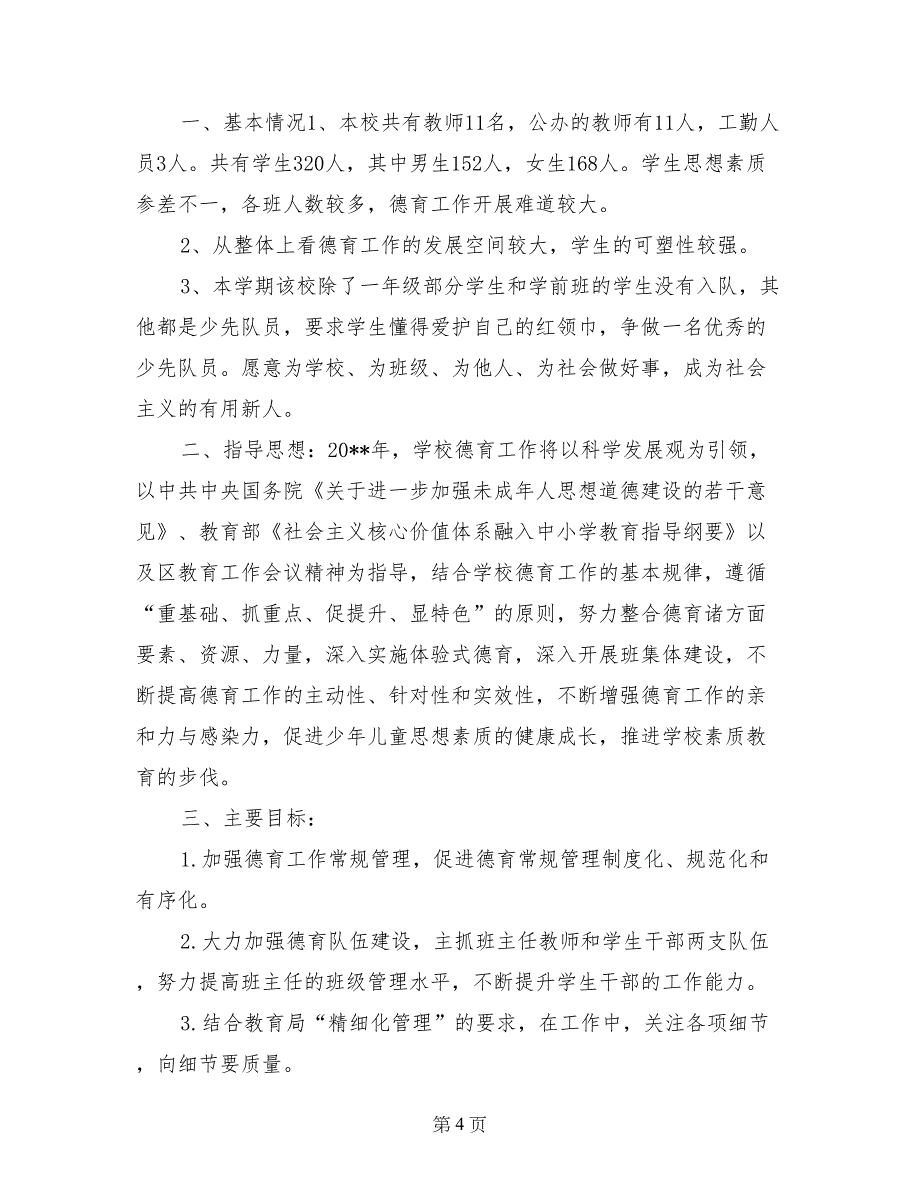 一、基本情况1、本校共有教师11名，公办的教师有11人，工勤人
员3人。共有学生320人，其中男生152人，女生168人。学生思想素质
参差不一，各班人数较多，德育工作开展难道较大。
2、从整体上看德育工作的发展空间较大，学生的可塑性较强。
3、本学期该校除了一年级部分学生和学前班的学生没有入队，其
他都是少先队员，要求学生懂得爱护自己的红领巾，争做一名优秀的
少先队员。愿意为学校、为班级、为他人、为社会做好事，成为社会
主义的有用新人。
二、指导思想：20**年，学校德育工作将以科学发展观为引领，
以中共中央国务院《关于进一步加强未成年人思想道德建设的若干意
见》、教育部《社会主义核心价值体系融入中小学教育指导纲要》以
及区教育工作会议精神为指导，结合学校德育工作的基本规律，遵循
“重基础、抓重点、促提升、显特色”的原则，努力整合德育诸方面
要素、资源、力量，深入实施体验式德育，深入开展班集体建设，不
断提高德育工作的主动性、针对性和实效性，不断增强德育工作的亲
和力与感染力，促进少年儿童思想素质的健康成长，推进学校素质教
育的步伐。
三、主要目标：
1.加强德育工作常规管理，促进德育常规管理制度化、规范化和
有序化。
2.大力加强德育队伍建设，主抓班主任教师和学生干部两支队伍
，努力提高班主任的班级管理水平，不断提升学生干部的工作能力。
3.结合教育局“精细化管理”的要求，在工作中，关注各项细节
，向细节要质量。
第 4 页